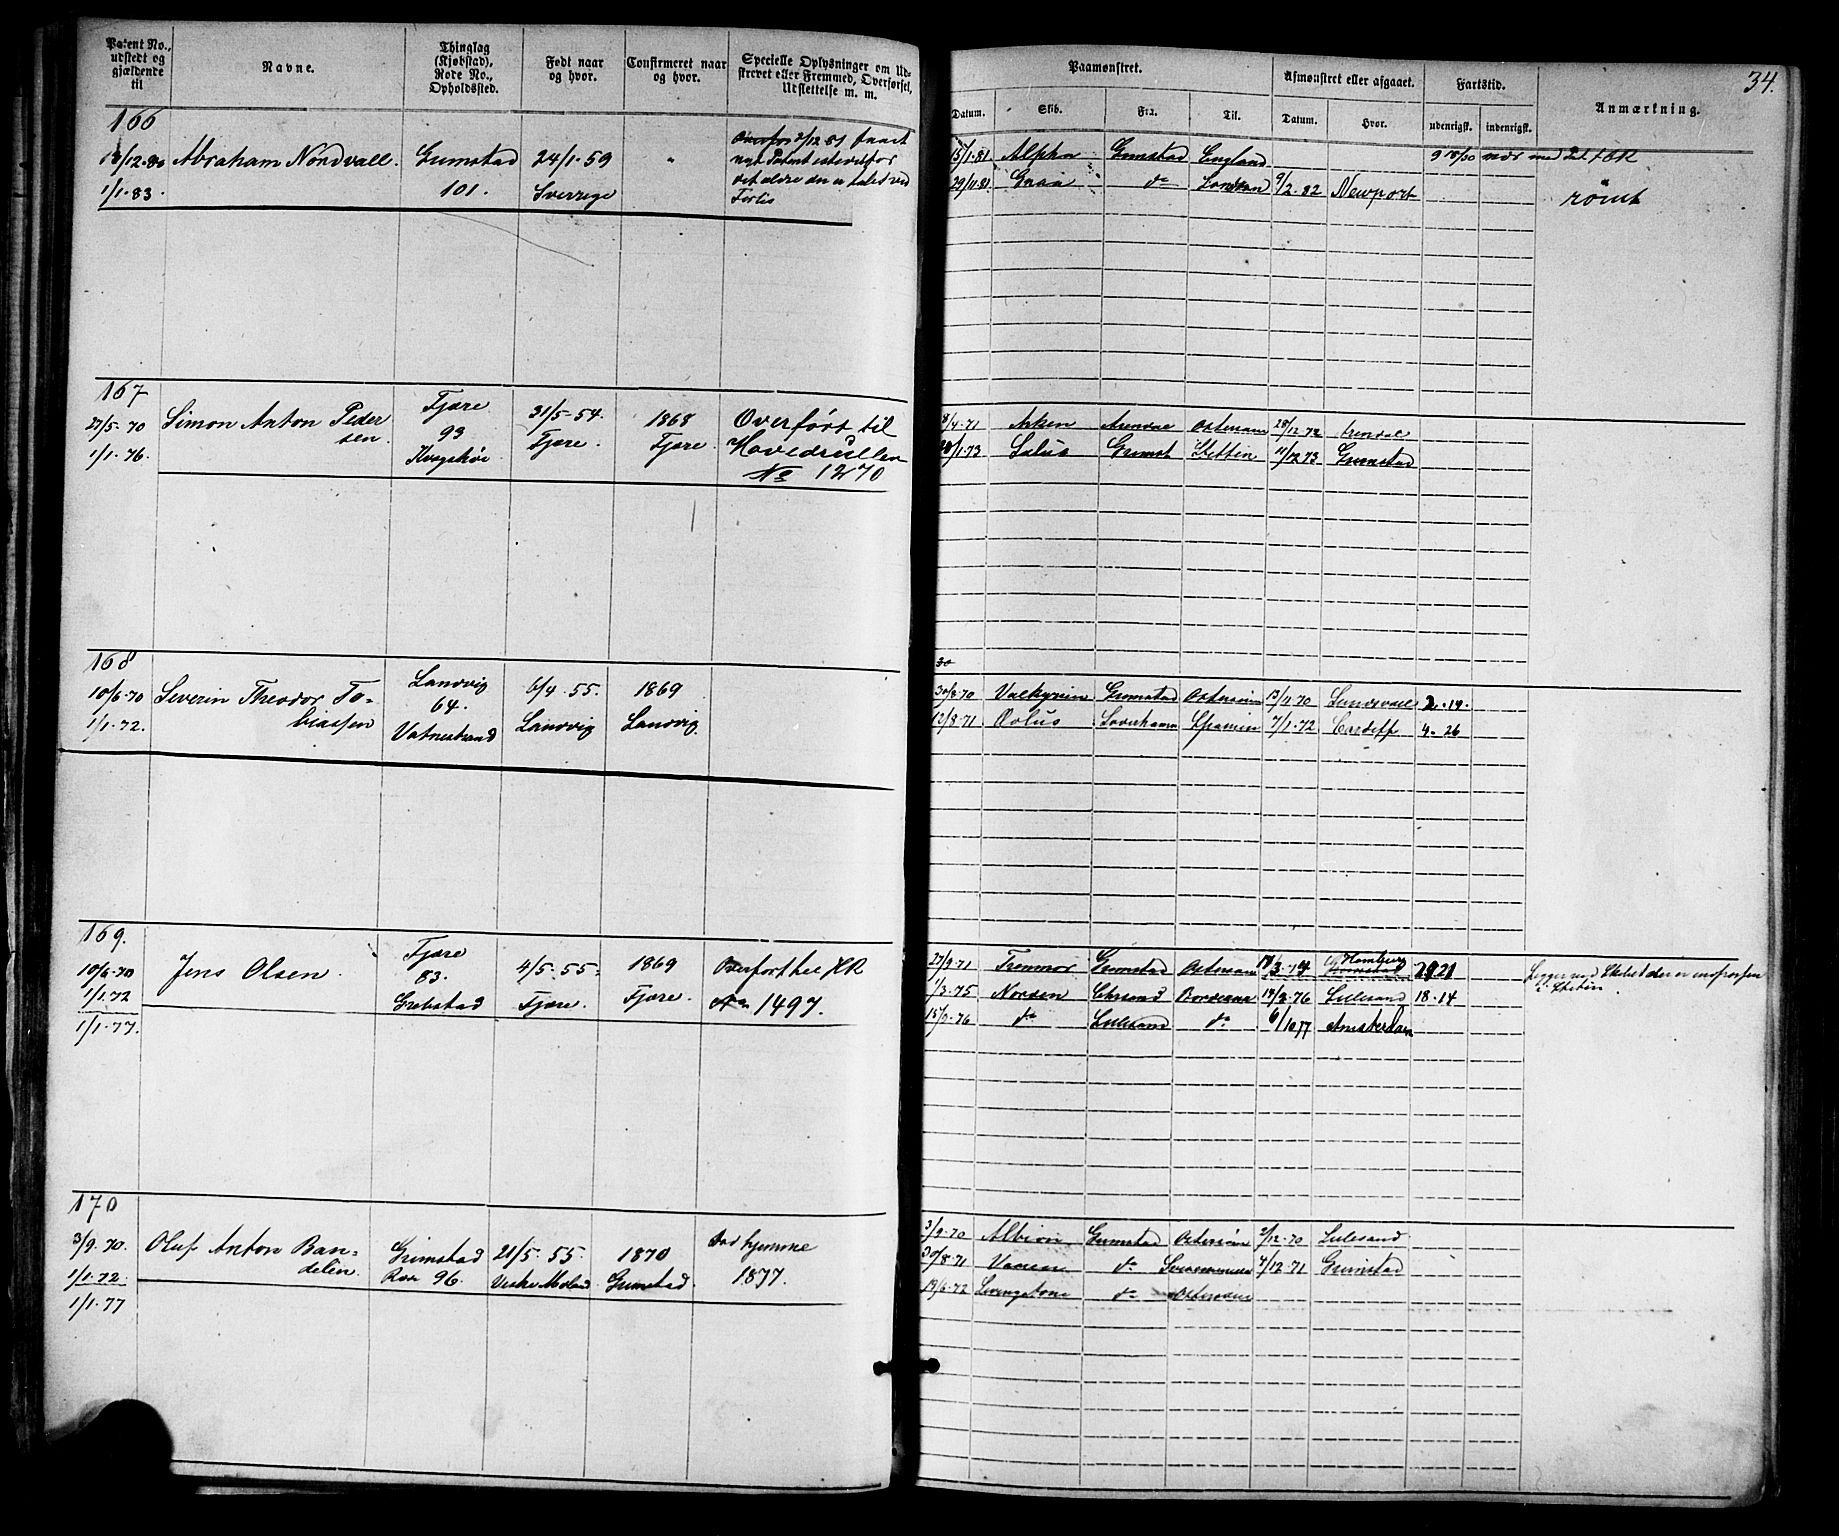 Patent No., udstedt og gjældende til
Navne.
Thinglag (Kjøbstad), Rode No., Opholdssted.
Født naar og hvor.
Confirmeret naar og hvor.
Specielle Oplysninger om Udskrevet eller Fremmed, Overførsel, Udslettelse m. m.
Paamønstret.
Afmønstret eller afgaaet.
Fartstid.
Anmærkning.
34.
Datum. Skib. Fra. Til. Datum. Hvor. udenrigsk. indenrigsk.
166
13/12.80 Abraham Nöndvall. Grimstad 24/1.59 "
1/1.83. 101. Sverrige
2/12 81 faaet
nyt Patent istedetfor
det ældre
Forlis
15/1.81 Alpha Grimstad England 9 18/30
29/11.81 do London 9/2.82 Newport rømt
167
27/5.70 Simon Anton Peder Fjære 31/5.54. 1868 Overført til
1/1.76. sen. 93 Fjære. Fjære Hovedrullen
No 1270
8/4.71 Asken Arendal Østersøen 28/12.72 Arendal
20/1.73 Salus Grimst Stettin 11/12 73 Grimstad
168
10/6.70 Severin Theodor To- Landvig 6/4.55. 1869
1/1.72. biassen 64. Landvig Landvig.
Vatnestrand
30
30/8.70 Valkyrien Grimstad Østersøen 13/11.70 Sundsvall 2.14.
12/8.71 Æolus Spanien 7/1.72 Cardiff 4.26
169.
10/6.70 Jens Olsen. Fjære 4/5.55. 1869 Overfort til HR
1/1.72 83. Fjære. Fjære. No 1497.
1/1.77. Grobstad
27/9.71 Trommor Grimstad Østersøen Hamburg
1/3.75 Norden Chrsand Bordeaux 18/2.76 Lillesand 18.14
15/9.76 do Lillesand do 6/10 77 Amsterdam
170
3/9.70. Oluf Anton Ban- Grimstad 21/5.55. 1870 død hjemme
1/1.72 delin. 96. Vestre Moland Grimstad. 1877.
1/1.77
3/9.70 Albion Grimstad Østersøen 2/12.70 Lillesand
30/8.71 do 4/12.71 Grimstad
19/6.72 Livingstone do Østersøen